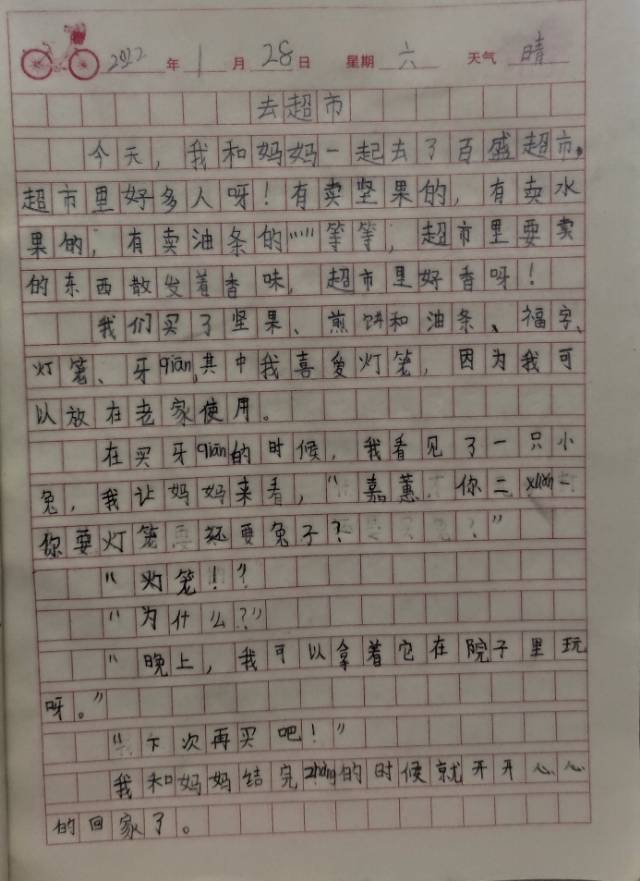 2022年1月28日 星期六 天气晴
去超市
今天，我和妈妈一起去了百盛超市，
超市里好多人呀！有卖坚果的，有卖水
果的，有卖油条的……等等，超市里要卖
的东西散发着香味，超市里好香呀！
我们买了坚果、煎饼和油条、福字、
灯笼、牙qiān,其中我喜爱灯笼，因为我可
以放在老家使用。
在买牙qiān的时候，我看见了一只小
兔，我让妈妈来看，“嘉蕙，你二xuǎn一
你要灯笼还要兔子？”
“灯笼！？
“为什么？”
“晚上，我可以拿着它在院子里玩
呀。”
“下次再买吧！”
我和妈妈结完zhàng的时候就开开心心
的回家了。